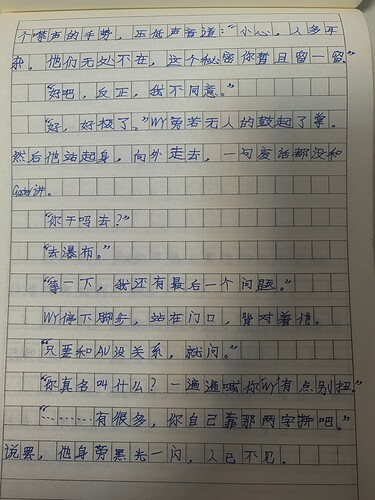 个禁声的手势，压低声音道：“小心，人多耳
杂。他们无处不在，这个秘密你暂且留一留。”
“好吧，反正，我不同意。”
“好，好极了。”WY旁若无人的鼓起了掌。
然后他站起身，向外走去，一句废话都没和
讲。
“你干吗去？”
“去瀑布。”
“等一下，我还有最后一个问题。”
WY停下脚步，站在门口，背对着他。
“只要和AU没关系，就问。”
“你真名叫什么？一遍遍喊你WY有点别扭。”
“………有很多，你自己靠那两字拆吧。”
说罢，他身旁黑光一闪，人已不见。